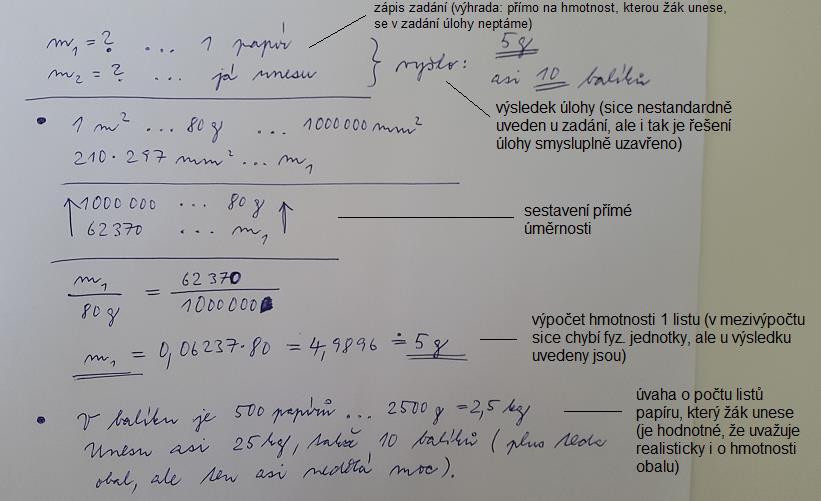 zápis zadání (výhrada: přímo na hmotnost, kterou žák unese,
se v zadání úlohy neptáme)
m₁ = ? ... 1 papír
m₂ = ? ... já unesu
} vyšlo: 5g
asi 10 balíků
výsledek úlohy (sice nestandardně
uveden u zadání, ale i tak je řešení
úlohy smysluplně uzavřeno)
• 1 m² ... 80 g ... 1000 000 mm²
210 · 297 mm² ... m₁
↑1000 000 ... 80 g ↑
62370 ... m₁
sestavení přímé
úměrnosti
m₁ / 80 g = 62370 / 1000000
m₁ = 0,06237·80 = 4,9896 ≐ 5 g
výpočet hmotnosti 1 listu (v mezivýpočtu
sice chybí fyz. jednotky, ale u výsledku
uvedeny jsou)
• V balíku je 500 papírů ... 2500 g = 2,5 kg
Unesu asi 25 kg, takže 10 balíků ( plus teda
obal, ale ten asi nedělá moc ).
úvaha o počtu listů
papíru, který žák unese
(je hodnotné, že uvažuje
realisticky i o hmotnosti
obalu)